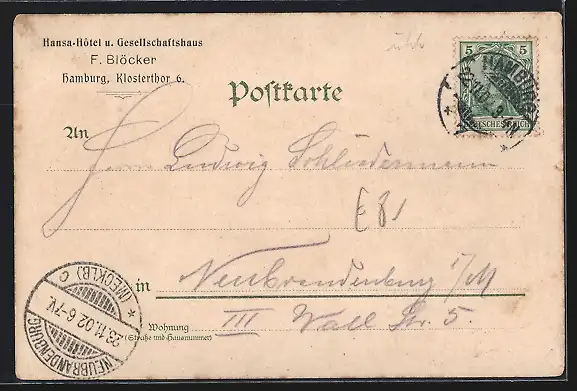 Hansa-Hôtel u. Gesellschaftshaus
F. Blöcker
Hamburg, Klosterthor 6.
Postkarte
5 5
HAMBURG
An
Herrn Ludwig Schliedermann
E 81
in Neubrandenburg i/M
Wohnung III Wall Str. 5.
(Straße und Hausnummer)
NEUBRANDENBURG (MECKLB) C
23.11.02 6-7V.